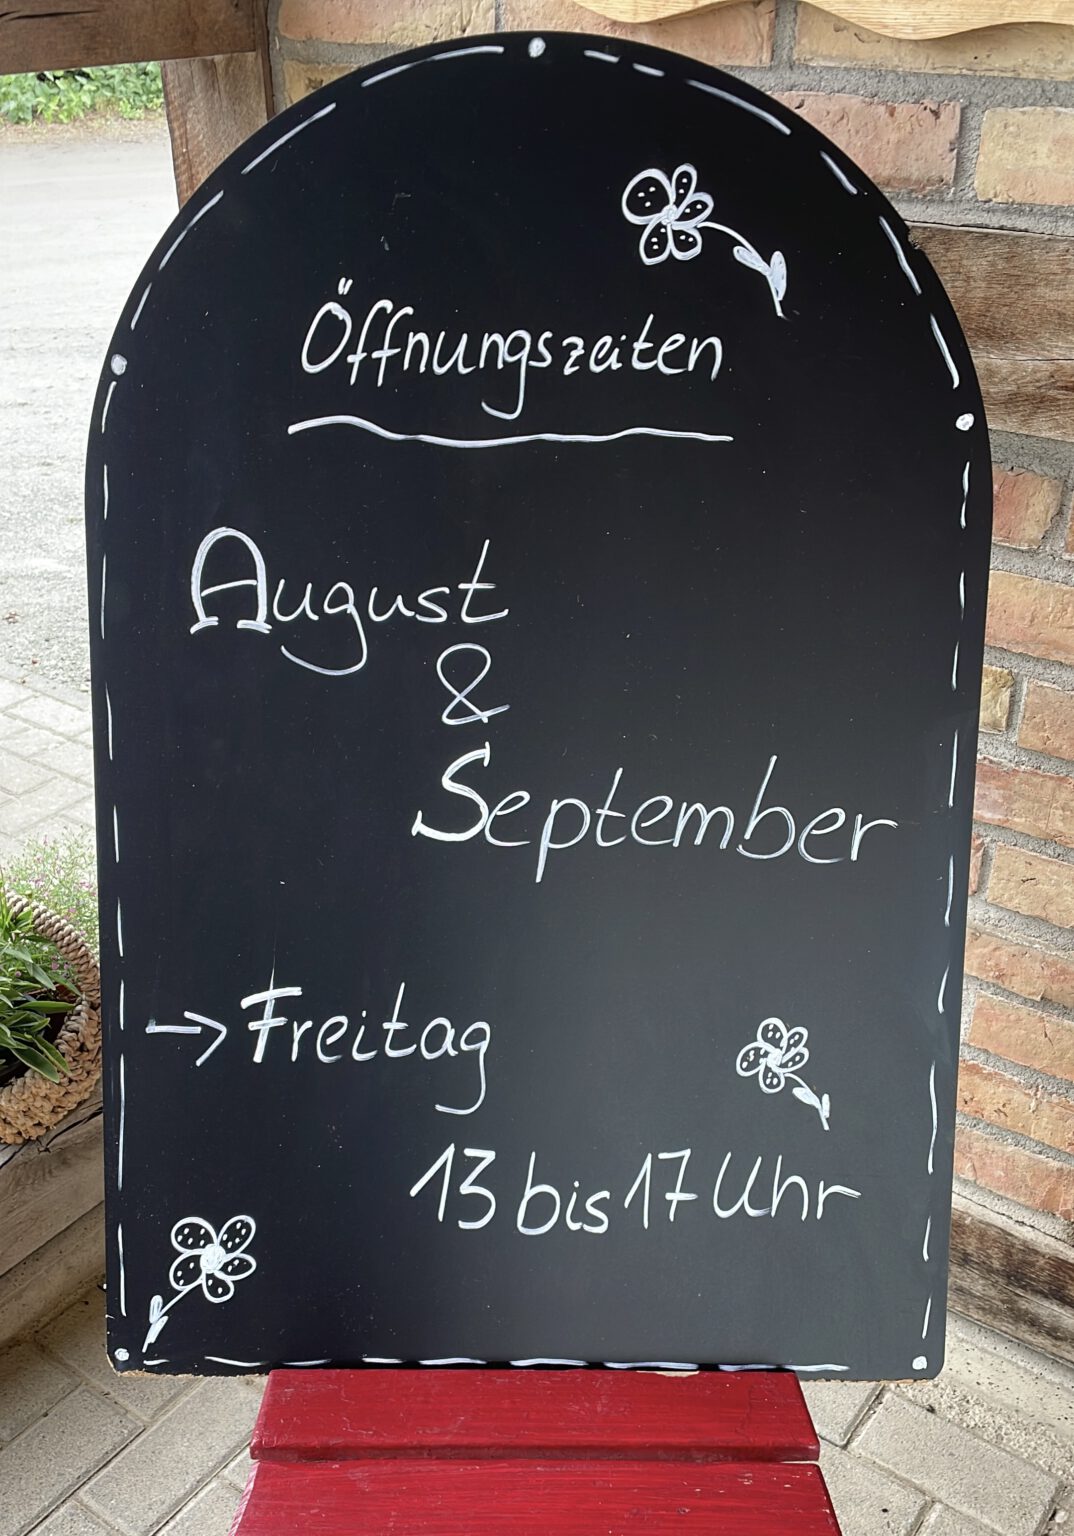 Öffnungszeiten
August
&
September
→ Freitag
13 bis 17 Uhr